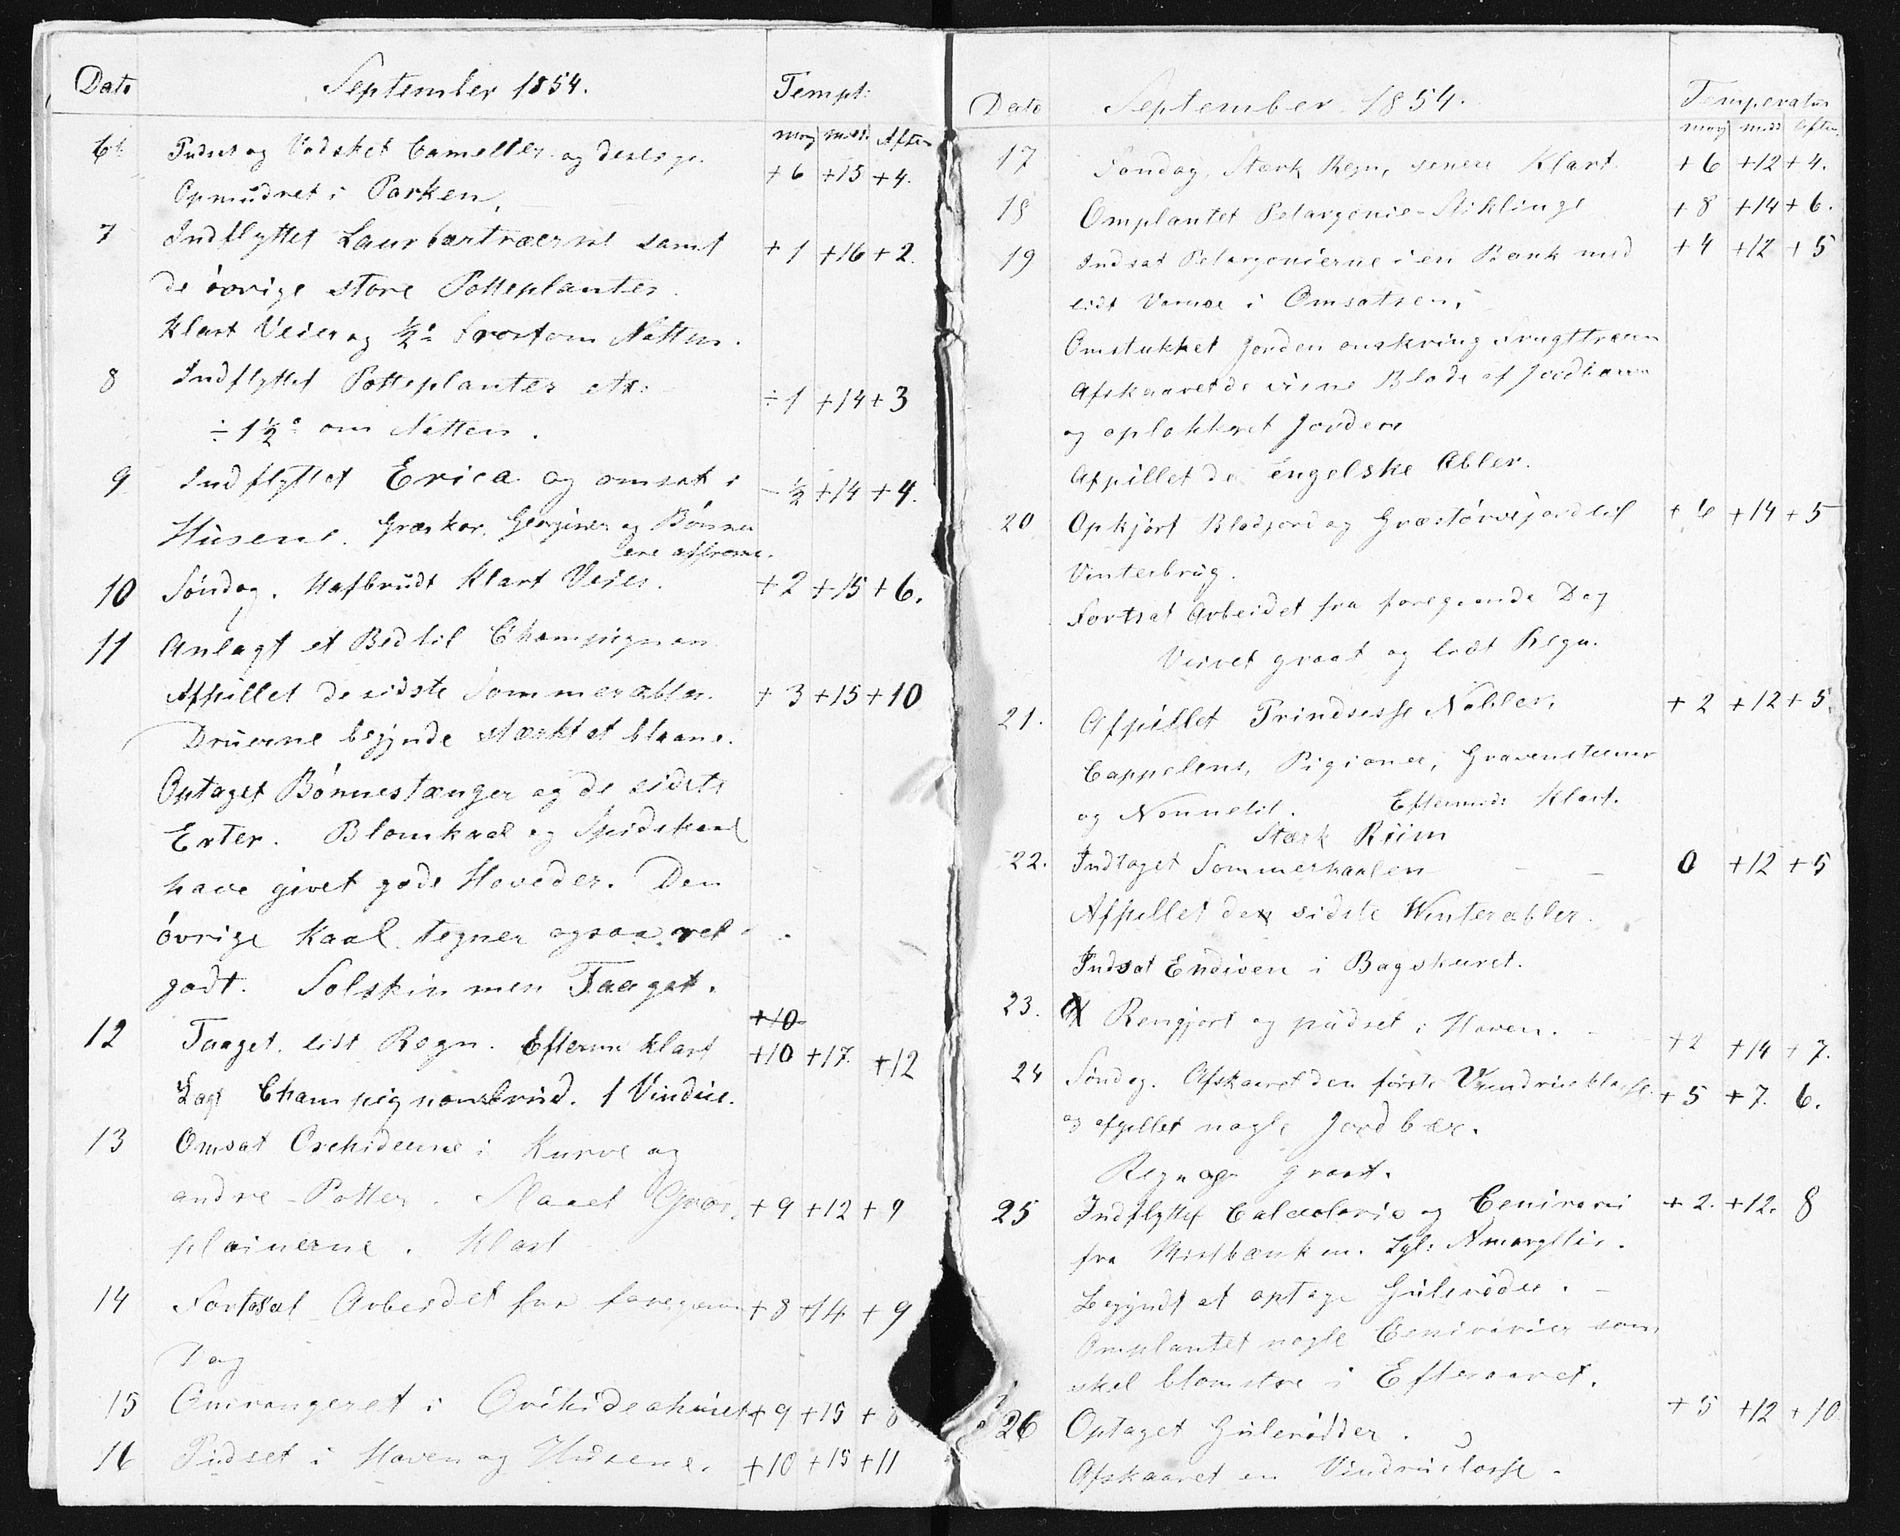 Dato September 1854. Tempt:
morg midd Aften
6te Pudset og Vadsket Camelier og deslige. +6 +15 +4.
Opmudret i Parken.
7 Indflyttet Laurbærtræerne samt +1 +16 +2.
de övrige store Potteplanter.
Klart Veier og ½° Frost om Natten.
8 Indflyttet Potteplanter etc: ÷1 +14 +3
÷1½° om Natten.
9 Indflyttet Erica og omsat i -½ +14 +4.
Húsene. Græskar, Georginer og Bönner
ere affrosne.
10 Söndag. Klart Veier. +2 +15 +6.
11 Anlagt et Bed til Champignon
Afpillet de sidste Sommeræbler. +3 +15 +10
Druerne begynde stærkt at blaane.
Optaget Bönnestænger og de sidste
Erter. Blomkaal og Spidskaal
have givet gode Hoveder. Den
övrige Kaal tegner ogsaa vel
godt. Solskin men Taaget.
+10
12 Taaget. lidt Regn. Efterm klart +10 +17. +12
Lagt Champignonsbrud. 1 Vindue.
13 Omsat Orchideerne i Kurve og
andre Potter. Slaaet Græs- +9 +12 +9
plainerne. Klart
14 Fortsat Arbeidet fra foregaaende +8 +14 +9
Dag
15 Omrangeret i Orchideahuset +9 +15 +8
16 Pudset i Haven og Husene. +10 +15 +11
Dato September 1854. Temperatur
morg midd Aften
17 Söndag. Stærk Regn, senere Klart. +6 +12 +4.
18 Omplantet Pelargonie-Stiklinge +8 +14 +6.
19 Indsat Pelargonierne i en Bænk med +4 +12 +5
lidt Varme i Omsatsen.
Omstukket Jorden omkring Frugttræerne
Afskaaret de visne Blade af Jordbærene
og oplokkret Jorden
Afpillet de engelske Æbler.
20 Opkjört Bladjord og Græstörvejord til +6 +14 +5
Vinterbrúg.
Fortsat Arbeidet fra foregaaende Dag
Veiret graat og lidt Regn.
21. Afpillet Prindsesse Æbler, +2 +12 +5.
Cappelens, Pigioner, Gravensteener
og Nonnetit. Eftermid: Klart.
Stærk Riim
22. Indtaget Sommerkaalen 0 +12 +5
Afpillet de sidste Winteræbler.
Indsat Endiven i Bagskuret.
23. Rengjort og púdset i Haven. +2 +14 +7.
24 Söndag. Afskaaret den förste Vindrueklasse +5 +7. 6.
og afpillet nogle Jordbær.
Regn og graat.
25 Indflyttet Calceolaria og Cenirarei +2. +12. 8
fra Mistbænken. Lgl: Amaryllis.
Begyndt at optage Gúleröder.
Omplantet nogle Cenirarier som
skal blomstre i Efteraaret.
26 Optaget Gúlerödder. +5 +12 +10
Afskaaret en Vindrueklasse.